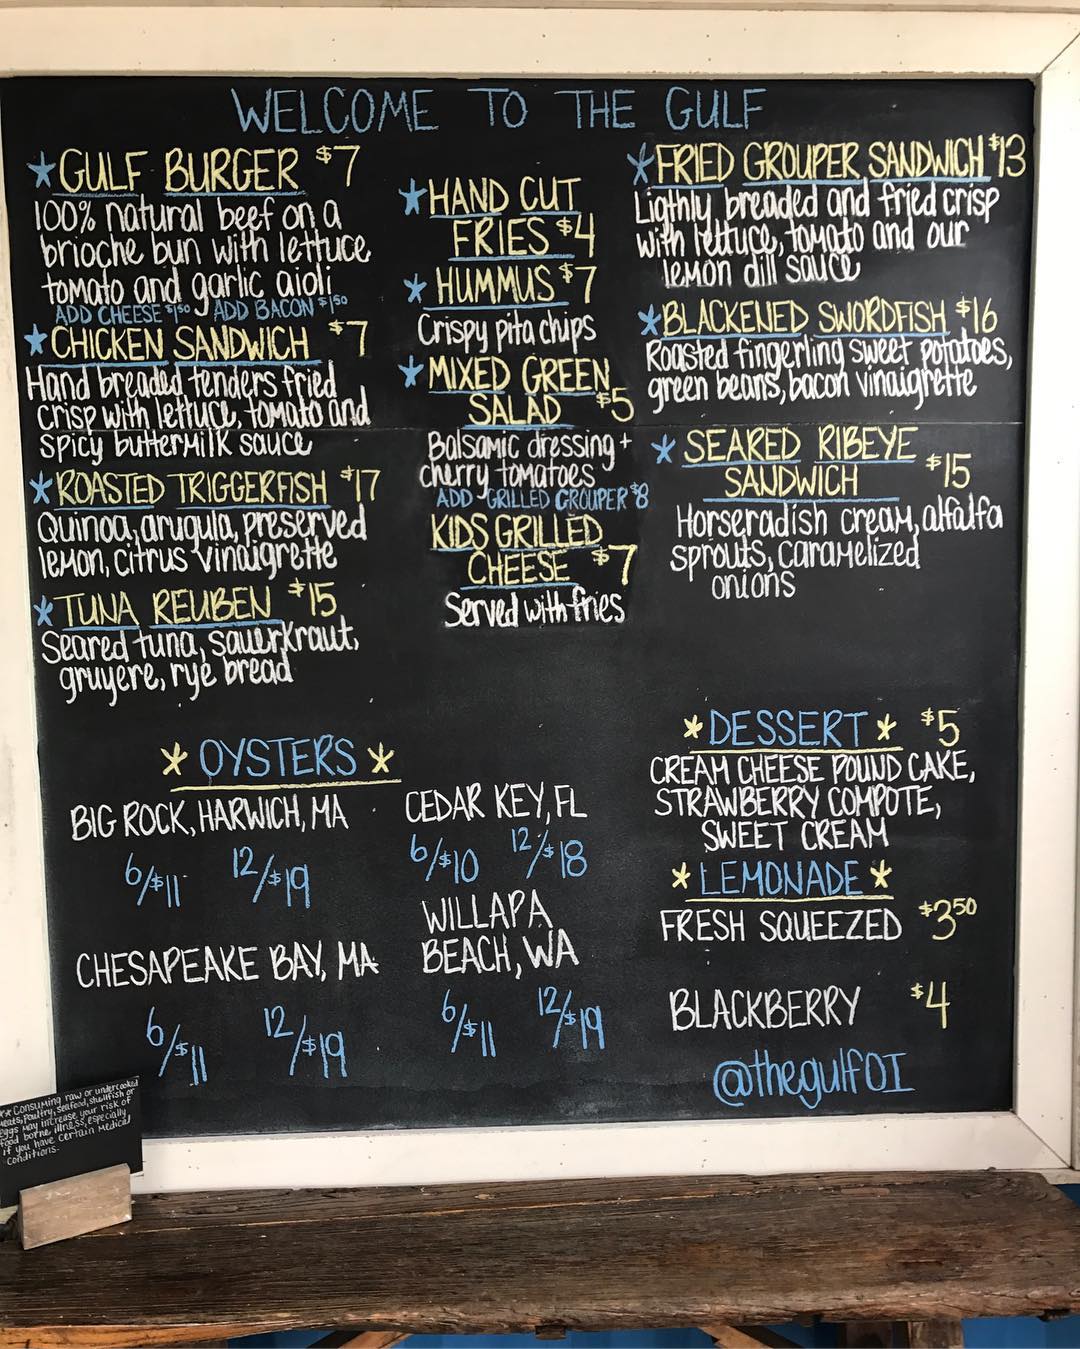 WELCOME TO THE GULF
*GULF BURGER $7
100% natural beef on a
brioche bun with lettuce
tomato and garlic aioli
ADD CHEESE $1.50 ADD BACON $1.50
*CHICKEN SANDWICH $7
Hand breaded tenders fried
crisp with lettuce, tomato and
spicy buttermilk sauce
*ROASTED TRIGGERFISH $17
Quinoa, arugula, preserved
lemon, citrus vinaigrette
*TUNA REUBEN $15
Seared tuna, sauerkraut,
gruyere, rye bread
*HAND CUT
FRIES $4
*HUMMUS $7
Crispy pita chips
*MIXED GREEN
SALAD $5
Balsamic dressing +
cherry tomatoes
ADD GRILLED GROUPER $8
KIDS GRILLED
CHEESE $7
Served with fries
*FRIED GROUPER SANDWICH $13
Ligthly breaded and fried crisp
with lettuce, tomato and our
lemon dill sauce
*BLACKENED SWORDFISH $16
Roasted fingerling sweet potatoes,
green beans, bacon vinaigrette
*SEARED RIBEYE
SANDWICH $15
Horseradish cream, alfalfa
sprouts, caramelized
onions
*OYSTERS*
BIG ROCK, HARWICH, MA
6/$11 12/$19
CHESAPEAKE BAY, MA
6/$11 12/$19
CEDAR KEY, FL
6/$10 12/$18
WILLAPA
BEACH, WA
6/$11 12/$19
*DESSERT* $5
CREAM CHEESE POUND CAKE,
STRAWBERRY COMPOTE,
SWEET CREAM
*LEMONADE*
FRESH SQUEEZED $3.50
BLACKBERRY $4
@thegulfOI
** Consuming raw or undercooked
meats, poultry, seafood, shellfish or
eggs may increase your risk of
food borne illness, especially
if you have certain medical
conditions.